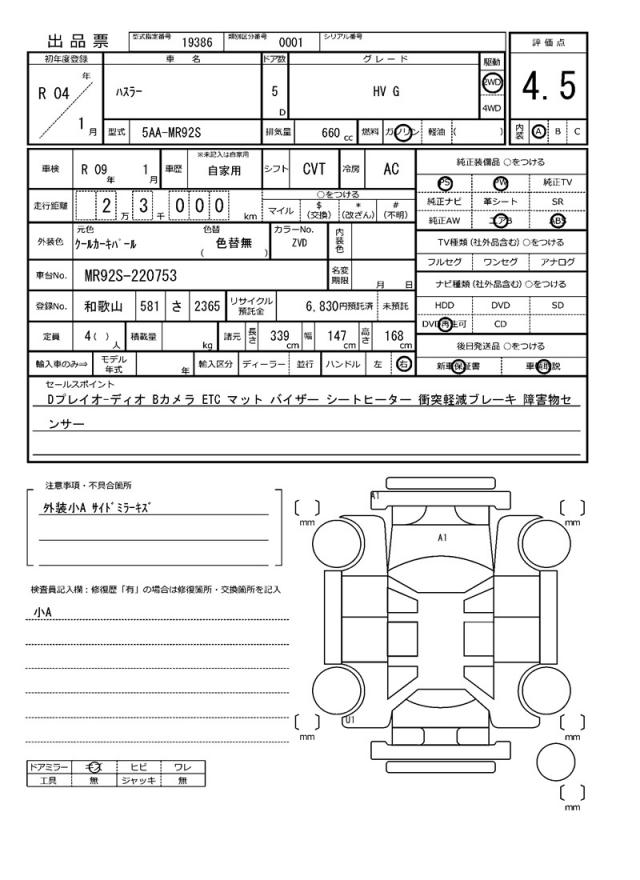 出品票 型式指定番号 19386 類別区分番号 0001 シリアル番号
評価点
初年度登録 車名 ドア数 グレード 駆動
R 04 年 1 月 ハスラー 5 D HV G 2WD 4WD
4.5
型式 5AA-MR92S 排気量 660 cc 燃料 ガソリン 軽油 ( )
内装 A B C
車検 R 09 年 1 月 車歴 ※未記入は自家用 自家用 シフト CVT 冷房 AC
純正装備品 ○をつける
PS PW 純正TV
走行距離 2 万 3 千 0 0 0 km ○をつける
マイル $ (交換) * (改ざん) # (不明)
純正ナビ 革シート SR
純正AW エアB ABS
外装色 元色 クールカーキパール 色替 ( 色替無 ) カラーNo. ZVD 内装色
TV種類 (社外品含む) ○をつける
フルセグ ワンセグ アナログ
車台No. MR92S-220753 名変期限 月 日
ナビ種類 (社外品含む) ○をつける
登録No. 和歌山 581 さ 2365 リサイクル預託金 6,830円預託済 未預託
HDD DVD SD
DVD再生可 CD
定員 4( ) 人 積載量 kg 諸元 長さ 339 cm 幅 147 cm 高さ 168 cm
後日発送品 ○をつける
輸入車のみ⇒ モデル年式 年 輸入区分 ディーラー 並行 ハンドル 左 右
新車保証書 車輌取説
セールスポイント
Dプレイオ-ディオ Bカメラ ETC マット バイザー シートヒーター 衝突軽減ブレーキ 障害物セ
ンサー
注意事項・不具合箇所
外装小A サイドミラーキズ
検査員記入欄：修復歴「有」の場合は修復箇所・交換箇所を記入
小A
A1
A1
U1
[ ] mm
[ ] mm
[ ] mm
[ ] mm
[ ] mm
ドアミラー キズ ヒビ ワレ
工具 無 ジャッキ 無